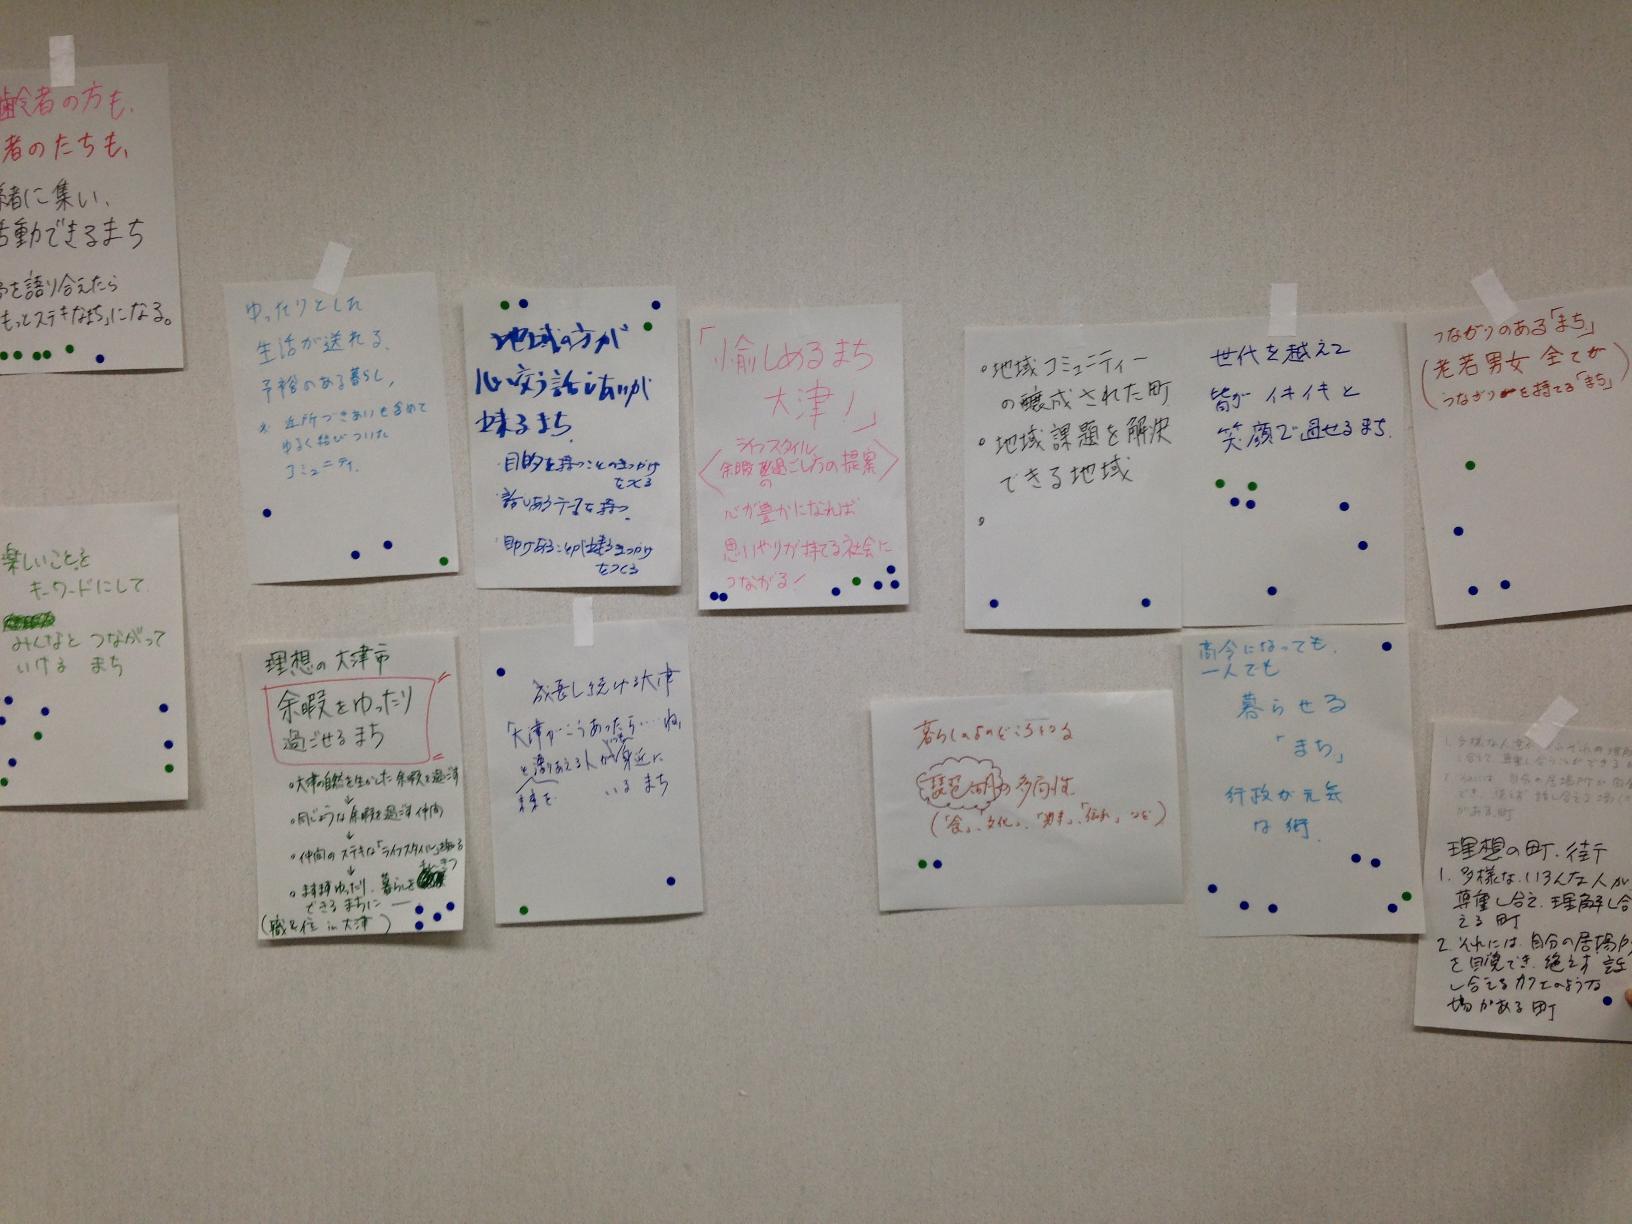 齢者の方も、
者のたちも、
緒に集い、
活動できるまち
を語り合えたら
もっとステキなまち」になる。
楽しいことを
キーワードにして
みんなと つながって
いける まち
ゆったりとした
生活が送れる、
余裕のある暮らし、
近所づきあいも含めて
ゆるく結びついた
コミュニティ。
理想の大津市
余暇をゆったり
過ごせるまち
大津の自然を生かした余暇を過ごす
同じような余暇を過ごす仲間
仲間のステキな「ライフスタイル」
ますますゆったり、暮らしを
できるまちに
(職&住 in 大津)
地域の方が
心い交う話しあいが
出来るまち
・目的を持つことのきっかけ
をつくる
・話しあうテーマを持つ
をつくる
成長し続ける大津
「大津がこうあったら…ね」
と語りあえる人が身近に
いる まち
「愉しめるまち
大津!」
ライフスタイル
余暇の過ごし方の提案
心が豊かになれば
思いやりが持てる社会に
つながる!
・地域コミュニティー
の醸成された町
・地域課題を解決
できる地域
暮らしのよりどころとなる
琵琶湖の多面性
(「食」、「文化」、など)
世代を越えて
皆が イキイキと
笑顔で過せるまち
高令になっても、
一人でも
暮らせる
「まち」
行政が元気
な街
つながりのある「まち」
(老若男女 全てが
つながりを持てる「まち」)
理想の町、街
1. 多様な、いろんな人が
尊重し合え、理解し合
える町
2. それには、自分の居場所
を自覚でき、絶えず 話
し合えるカフェのような
場がある町